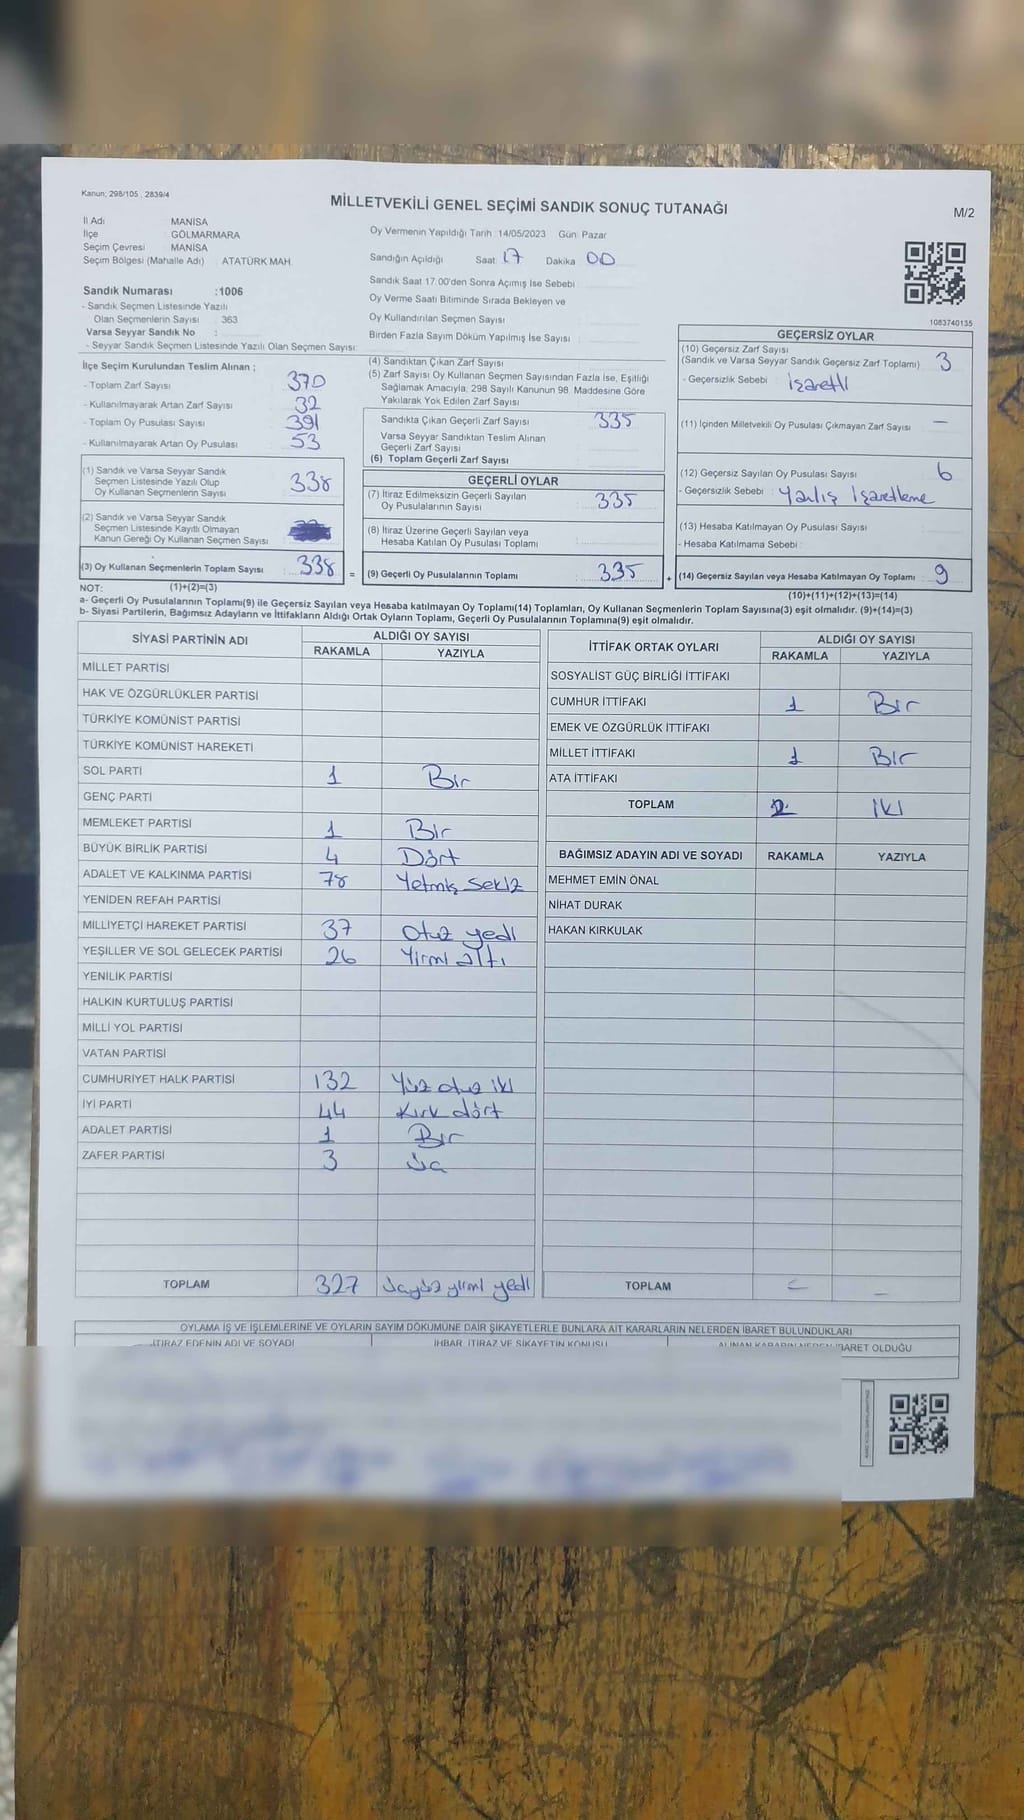 Kanun; 298/105 , 2839/4
MİLLETVEKİLİ GENEL SEÇİMİ SANDIK SONUÇ TUTANAĞI
M/2
İl Adı MANİSA
İlçe GÖLMARMARA
Seçim Çevresi MANİSA
Seçim Bölgesi (Mahalle Adı) : ATATÜRK MAH.
Oy Vermenin Yapıldığı Tarih :14/05/2023 Gün: Pazar
Sandığın Açıldığı Saat: 17 Dakika 00
Sandık Saat 17:00'den Sonra Açımış İse Sebebi
Oy Verme Saati Bitiminde Sırada Bekleyen ve
Oy Kullandırılan Seçmen Sayısı
Birden Fazla Sayım Döküm Yapılmış İse Sayısı :
1083740135
Sandık Numarası :1006
- Sandık Seçmen Listesinde Yazılı
Olan Seçmenlerin Sayısı : 363
Varsa Seyyar Sandık No :
- Seyyar Sandık Seçmen Listesinde Yazılı Olan Seçmen Sayısı:
İlçe Seçim Kurulundan Teslim Alınan ;
- Toplam Zarf Sayısı 370
- Kullanılmayarak Artan Zarf Sayısı 32
- Toplam Oy Pusulası Sayısı 391
- Kullanılmayarak Artan Oy Pusulası 53
(1) Sandık ve Varsa Seyyar Sandık
Seçmen Listesinde Yazılı Olup
Oy Kullanan Seçmenlerin Sayısı 338
(2) Sandık ve Varsa Seyyar Sandık
Seçmen Listesinde Kayıtlı Olmayan
Kanun Gereği Oy Kullanan Seçmen Sayısı :
(3) Oy Kullanan Seçmenlerin Toplam Sayısı 338 =
(1)+(2)=(3)
(4) Sandıktan Çıkan Zarf Sayısı
(5) Zarf Sayısı Oy Kullanan Seçmen Sayısından Fazla İse, Eşitliği
Sağlamak Amacıyla, 298 Sayılı Kanunun 98. Maddesine Göre
Yakılarak Yok Edilen Zarf Sayısı
Sandıkta Çıkan Geçerli Zarf Sayısı 335
Varsa Seyyar Sandıktan Teslim Alınan
Geçerli Zarf Sayısı
(6) Toplam Geçerli Zarf Sayısı
GEÇERLİ OYLAR
(7) İtiraz Edilmeksizin Geçerli Sayılan
Oy Pusulalarının Sayısı 335
(8) İtiraz Üzerine Geçerli Sayılan veya
Hesaba Katılan Oy Pusulası Toplamı
(9) Geçerli Oy Pusulalarının Toplamı 335 +
GEÇERSİZ OYLAR
(10) Geçersiz Zarf Sayısı
(Sandık ve Varsa Seyyar Sandık Geçersiz Zarf Toplamı) 3
- Geçersizlik Sebebi : İşaretli
(11) İçinden Milletvekili Oy Pusulası Çıkmayan Zarf Sayısı —
(12) Geçersiz Sayılan Oy Pusulası Sayısı 6
- Geçersizlik Sebebi : Yanlış İşaretleme
(13) Hesaba Katılmayan Oy Pusulası Sayısı
- Hesaba Katılmama Sebebi :
(14) Geçersiz Sayılan veya Hesaba Katılmayan Oy Toplamı 9
(10)+(11)+(12)+(13)=(14)
NOT:
a- Geçerli Oy Pusulalarının Toplamı(9) ile Geçersiz Sayılan veya Hesaba katılmayan Oy Toplamı(14) Toplamları, Oy Kullanan Seçmenlerin Toplam Sayısına(3) eşit olmalıdır. (9)+(14)=(3)
b- Siyasi Partilerin, Bağımsız Adayların ve İttifakların Aldığı Ortak Oyların Toplamı, Geçerli Oy Pusulalarının Toplamına(9) eşit olmalıdır.
SİYASİ PARTİNİN ADI ALDIĞI OY SAYISI
RAKAMLA YAZIYLA
MİLLET PARTİSİ
HAK VE ÖZGÜRLÜKLER PARTİSİ
TÜRKİYE KOMÜNİST PARTİSİ
TÜRKİYE KOMÜNİST HAREKETİ
SOL PARTİ 1 Bir
GENÇ PARTİ
MEMLEKET PARTİSİ 1 Bir
BÜYÜK BİRLİK PARTİSİ 4 Dört
ADALET VE KALKINMA PARTİSİ 78 Yetmiş sekiz
YENİDEN REFAH PARTİSİ
MİLLİYETÇİ HAREKET PARTİSİ 37 otuz yedi
YEŞİLLER VE SOL GELECEK PARTİSİ 26 Yirmi altı
YENİLİK PARTİSİ
HALKIN KURTULUŞ PARTİSİ
MİLLİ YOL PARTİSİ
VATAN PARTİSİ
CUMHURİYET HALK PARTİSİ 132 Yüz otuz iki
İYİ PARTİ 44 Kırk dört
ADALET PARTİSİ 1 Bir
ZAFER PARTİSİ 3 üç
TOPLAM 327 üçyüz yirmi yedi
İTTİFAK ORTAK OYLARI ALDIĞI OY SAYISI
RAKAMLA YAZIYLA
SOSYALİST GÜÇ BİRLİĞİ İTTİFAKI
CUMHUR İTTİFAKI 1 Bir
EMEK VE ÖZGÜRLÜK İTTİFAKI
MİLLET İTTİFAKI 1 Bir
ATA İTTİFAKI
TOPLAM 2 İki
BAĞIMSIZ ADAYIN ADI VE SOYADI RAKAMLA YAZIYLA
MEHMET EMİN ÖNAL
NİHAT DURAK
HAKAN KIRKULAK
TOPLAM — —
OYLAMA İŞ VE İŞLEMLERİNE VE OYLARIN SAYIM DÖKÜMÜNE DAİR ŞİKAYETLERLE BUNLARA AİT KARARLARIN NELERDEN İBARET BULUNDUKLARI
İTİRAZ EDENİN ADI VE SOYADI İHBAR, İTİRAZ VE ŞİKAYETİN KONUSU ALINAN KARARIN NEDEN İBARET OLDUĞU